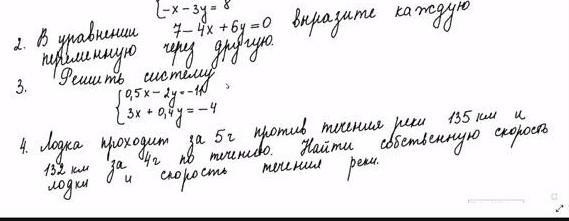 {-x-3y=8
2. В уравнении 7-4x+6y=0 выразите каждую
переменную через другую.
3. Решить систему
{0,5x-2y=-11
3x+0,4y=-4
4. Лодка проходит за 5ч против течения реки 135 км и
132 км за 4ч по течению. Найти собственную скорость
лодки и скорость течения реки.